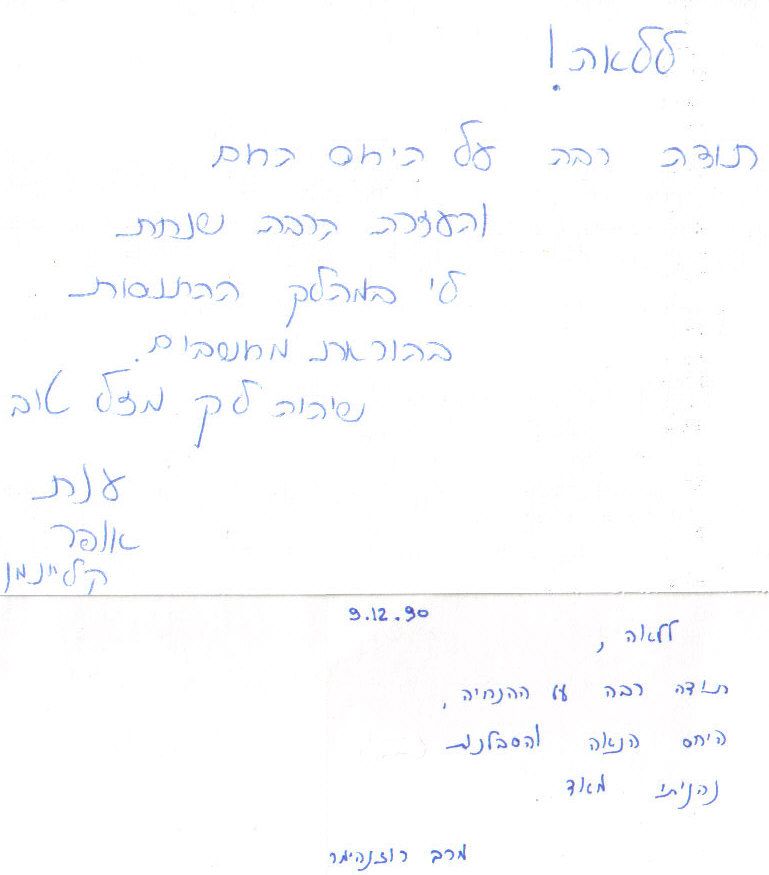 ללאה!
תודה רבה על היחס החם
והעזרה הרבה שנתת
לי במהלך ההתנסות
בהוראת מחשבים.
שיהיה לך מזל טוב
ענת
אופר
קליינמן
9.12.90
ללאה,
תודה רבה על ההנחיה,
היחס הנאה והסבלנות
נהניתי מאוד
מרב רוזנהימר